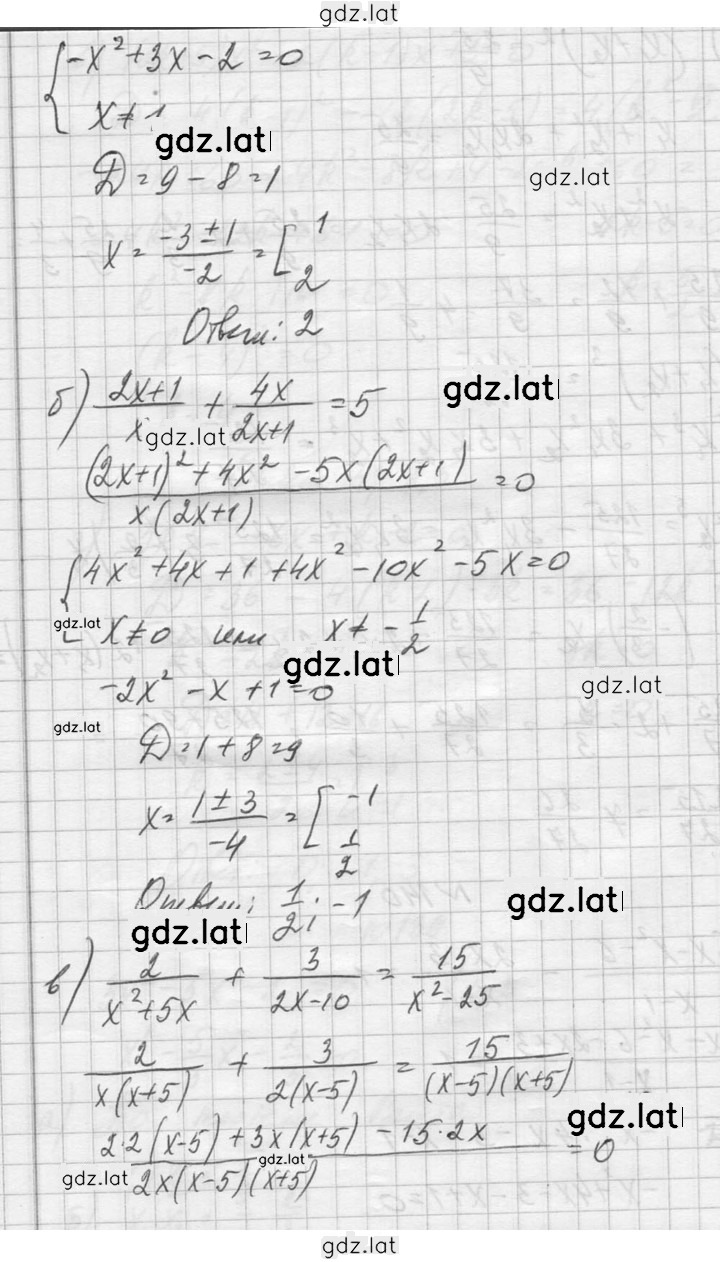 gdz.lat
{ -x²+3x-2=0
x≠1
gdz.lat
D=9-8=1
gdz.lat
x = (-3±1)/(-2) = [ 1
2
Ответ: 2
б) (2x+1)/x + 4x/(2x+1) = 5
gdz.lat
gdz.lat
((2x+1)²+4x²-5x(2x+1))/(x(2x+1)) = 0
{ 4x²+4x+1+4x²-10x²-5x=0
gdz.lat
x≠0 или x≠-1/2
gdz.lat
-2x²-x+1=0
gdz.lat
gdz.lat
D=1+8=9
x = (1±3)/(-4) = [ -1
1/2
Ответ: 1/2; -1
gdz.lat
gdz.lat
в) 2/(x²+5x) + 3/(2x-10) = 15/(x²-25)
2/(x(x+5)) + 3/(2(x-5)) = 15/((x-5)(x+5))
gdz.lat
(2·2(x-5)+3x(x+5)-15·2x)/(2x(x-5)(x+5)) = 0
gdz.lat
gdz.lat
gdz.lat